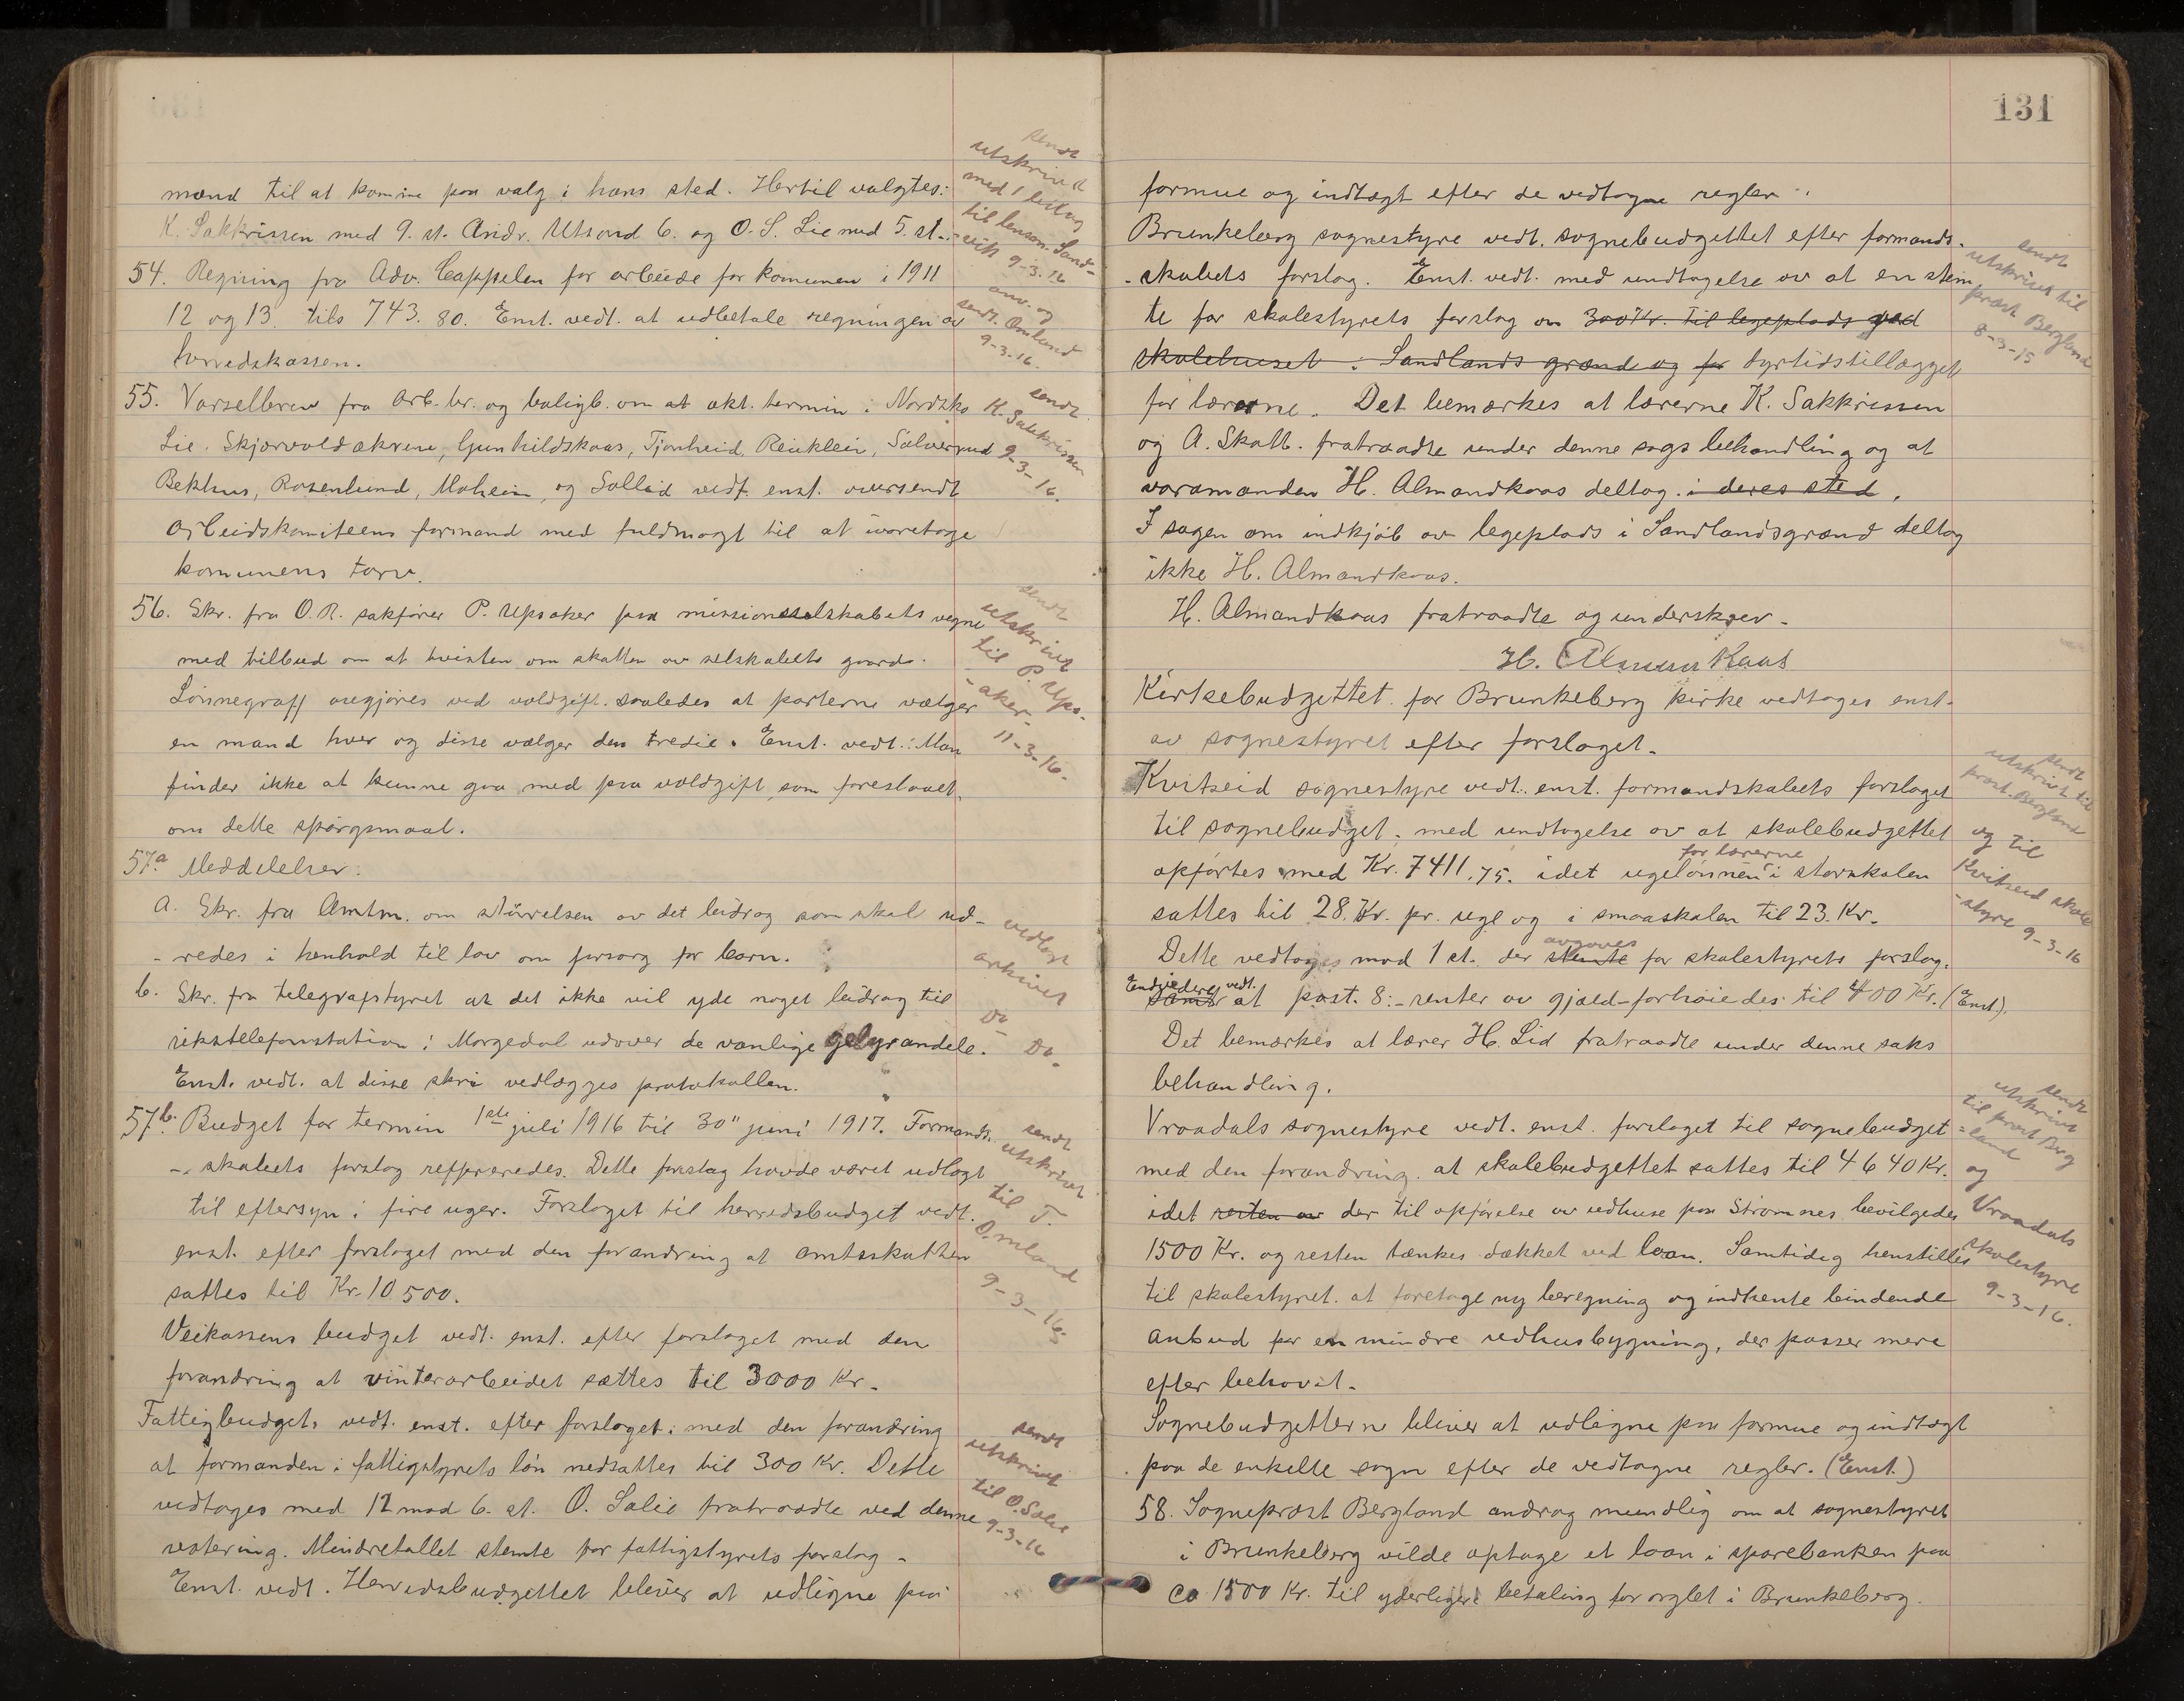 mænd til at komme paa valg i hans sted. Hertil valgtes:
K. Sakkrissen med 9. st. Andr. Utsond 6. og O. S. Lie med 5. st.
54. Regning fra Adv. Cappelen for arbeide for komunen i 1911
12 og 13. tils 743.80. Enst. vedt. at udbetale regningen av
herredskassen.
55. Varselbrev fra Arb.br. og boligb. om at akt. termin i Nordsko
Lie. Skjærvoldækrene, Gunhildskaas, Tjonheid, Reinklein, Sølverud
Bekhus, Rosenlund, Moheim, og Sollid vedt. enst. oversendt
Arbeidskomiteens formand med fuldmagt til at ivaretage
komunens tarv.
56. Skr. fra O.R. sakfører P. Upsaker paa missionsselskabets vegne
med tilbud om at tvisten om skatten av selskabets gaard
Lønnegraff avgjøres ved voldgift saaledes at parterne vælger
en mand hver og disse vælger den tredie. Enst. vedt.: Man
finder ikke at kunne gaa med paa voldgift som foreslaaet,
om dette spørgsmaal.
57.a Meddelelser:
a. Skr. fra Amtm. om størrelsen av det bidrag som skal ud-
-redes i henhold til lov om forsorg for barn.
b. Skr. fra telegrafstyret at det ikke vil yde noget bidrag til
rikstelefonstation i Morgedal udover de vanlige gebyrandele.
Enst. vedt. at disse skri vedlægges protokollen.
57.b. Budget for termin 1ste juli 1916 til 30" juni 1917. Formands-
-skabets forslag reffereredes. Dette forslag havde været udlagt
til eftersyn i fire uger. Forslaget til herredsbudget vedt.
enst. efter forslaget med den forandring at amtsskatten
sattes til Kr. 10500.
Veikassens budget vedt. enst. efter forslaget med den
forandring at vinterarbeidet sættes til 3000 Kr.
Fattigbudget vedt. enst. efter forslaget: med den forandring
at formanden i fattigstyrets løn nedsattes til 300 Kr. Dette
vedtages med 12 mod 6. st. O. Salie fratraadte ved denne
votering. Mindretallet stemte for fattigstyrets forslag.
Enst. vedt. Herredsbudgettet bliver at udligne paa
sendt
utskrivt
med 1 bilag
til lensm. Sand-
-vik 9-3-16
anv. og
sendt Omlund
9-3-16.
sendt
K. Sakkrissen
9-3-16.
sendt
utskrivt
til P. Ups-
-aker-
11-3-16.
vedlagt
arkivet
Do
Do.
sendt
utskrivt
til T.
Omland
9-3-16.
sendt
utskrivt
til O. Salie
9-3-16
131
formue og indtægt efter de vedtagne regler.
Brunkeberg sognestyre vedt. sognebudgettet efter formands-
-skabets forslag. Enst. vedt. med undtagelse av at en stem
te for skolestyrets forslag om 300 Kr. til legeplads ved
skolehuset i Sandlands grænd og for dyrtidstillægget
for lærerne. Det bemærkes at lærerne K. Sakkrissen
og A. Skatt. fratraadte under denne sags behandling og at
varamanden H. Almandkaas deltog i deres sted.
I sagen om indkjøb av legeplads i Sandlandsgrænd deltog
ikke H. Almandkaas.
H. Almandkaas fratraadte og underskrev.
H. Almankaas
Kirkebudgettet for Brunkeberg kirke vedtages enst.
av sognestyret efter forslaget.
Kvitseid sognestyre vedt. enst. formandskabets forslaget
til sognebudget, med undtagelse av at skolebudgettet
opførtes med Kr. 7411,75. idet ugelønnen for lærerne i storskolen
sattes til 28. Kr. pr. uge og i smaaskolen til 23. Kr.
Dette vedtages mod 1 st. der stemte avgaves for skolestyrets forslag.
Endvidere vedt. samt at post. 8:- renter av gjæld- forhøiedes til 400 Kr. (Enst.).
Det bemærkes at lærer H. Lid fratraadte under denne saks
behandling.
Vraadals sognestyre vedt. enst. forslaget til sognebudget
med den forandring. at skolebudgettet sattes til 4640 Kr.
idet resten av der til opførelse av udhuse paa Strømnes bevilgedes
1500 Kr. og resten tænkes dækket ved loan. Samtidig henstilles
til skolestyret. at foretage ny beregning og indhente bindende
anbud for en mindre udhusbygning, der passer mere
efter behovet.
Sognebudgetterne bliver at udligne paa formue og indtægt
paa de enkelte sogn efter de vedtagne regler. (Enst.)
58. Sogneprest Bergland androg mundlig om at sognestyret
i Brunkeberg vilde optage et loan i sparebanken paa
ca 1500 Kr. til yderligere betaling for orglet i Brunkeberg.
sendt
utskrivt til
prost Bergland
8-3-15
sendt
utskrivt til
prost. Bergland
og til
Kvitseid skole
-styre 9-3-16
sendt
utskrivt
til prost Berg
-land
og
Vraadals
skolestyre
9-3-16.